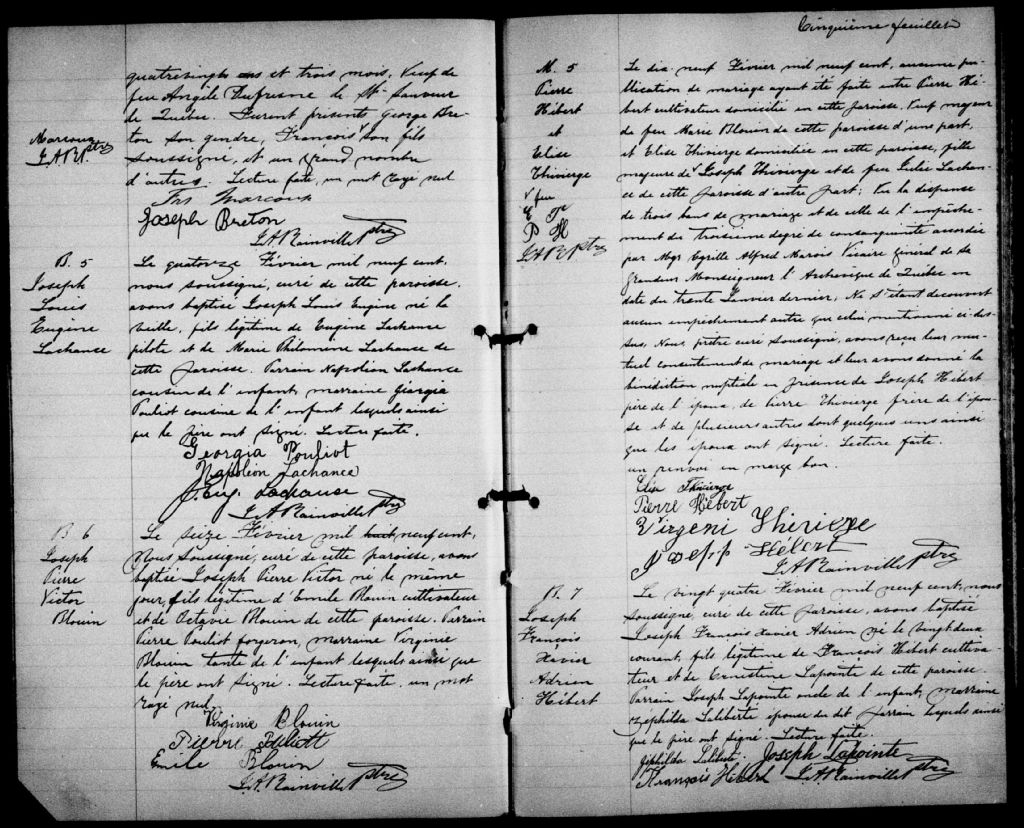 quatrevingts ans et trois mois, veuf de
feu Angèle Dufresne de St Sauveur
de Québec. Furent présents George Bre-
ton son gendre, François son fils
soussigné, et un grand nombre
d'autres. Lecture faite, un mot rayé nul
Marcoux
J.A.R. ptre
Frs Marcoux
Joseph Breton
J.A. Rainville ptre
B. 5
Joseph
Louis
Eugène
Lachance
Le quatorze Février mil neuf cent,
nous soussigné, curé de cette paroisse,
avons baptisé Joseph Louis Eugène né la
veille, fils légitime de Eugène Lachance
pilote et de Marie Philomène Lachance de
cette paroisse. Parrain Napoléon Lachance
cousin de l'enfant, marraine Georgia
Pouliot cousine de l'enfant lesquels ainsi
que le père ont signé. Lecture faite.
Georgia Pouliot
Napoléon Lachance
J. Eug. Lachance
J.A. Rainville ptre
B 6
Joseph
Pierre
Victor
Blouin
Le seize Février mil huit neuf cent,
Nous soussigné, curé de cette paroisse, avons
baptisé Joseph Pierre Victor né le même
jour, fils légitime d'Emile Blouin cultivateur
et de Octavie Blouin de cette paroisse. Parrain
Pierre Pouliot forgeron, marraine Virginie
Blouin tante de l'enfant lesquels ainsi que
le père ont signé. Lecture faite, un mot
rayé nul.
Virginie Blouin
Pierre Pouliott
Emile Blouin
J.A. Rainville ptre
Cinquième feuillet
M. 5
Pierre
Hébert
et
Elise
Thivierge
v feu
E T
P H
J.A.R. ptre
Le dix neuf Février mil neuf cent, aucune pu-
blication de mariage ayant été faite entre Pierre Hé-
bert cultivateur domicilié en cette paroisse, veuf majeur
de feu Marie Blouin de cette paroisse d'une part,
et Elise Thivierge domiciliée en cette paroisse, fille
majeure de v Joseph Thivierge et de feu Julie Lachan-
ce de cette paroisse d'autre part; Vu la dispense
de trois bans de mariage et de celle de l'empêche-
ment du troisième degré de consanguinité accordée
par Mgr Cyrille Alfred Marois Vicaire Général de Sa
Grandeur Monseigneur l'Archevêque de Québec en
date du trente Janvier dernier, Ne s'étant découvert
aucun empêchement autre que celui mentionné ci des-
sus, Nous, prêtre curé soussigné, avons reçu leur mu-
tuel consentement de mariage et leur avons donné la
bénédiction nuptiale en présence de Joseph Hébert
père de l'époux, de Pierre Thivierge frère de l'épou-
se et de plusieurs autres dont quelques uns ainsi
que les époux ont signé. Lecture faite.
un renvoi en marge bon.
Elise Thivierge
Pierre Hébert
Virgeni Thivierge
Josepp Hébert
J.A. Rainville ptre
B. 7
Joseph
François
Xavier
Adrien
Hébert
Le vingt quatre Février mil neuf cent, nous
soussigné, curé de cette paroisse, avons baptisé
Joseph François Xavier Adrien né le vingt deux
courant, fils légitime de François Hébert cultiva-
teur et de Ernestine Lapointe de cette paroisse.
Parrain Joseph Lapointe oncle de l'enfant, marraine
Zéphilda Laliberté épouse du dit parrain lesquels ainsi
que le père ont signé. Lecture faite.
Zéphilda Laliberté Joseph Lapointe
François Hébert J.A. Rainville ptre